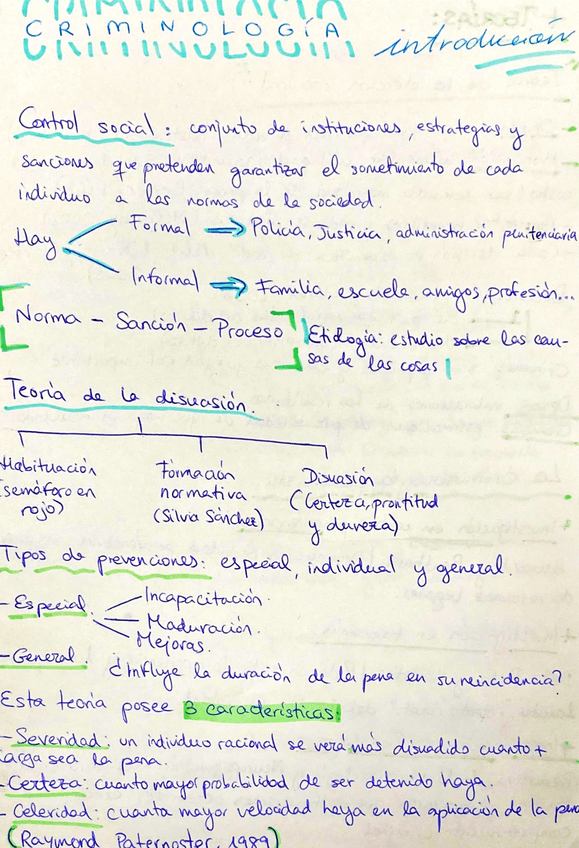 CRIMINOLOGÍA
introducción
Control social: conjunto de instituciones, estrategias y
sanciones que pretenden garantizar el sometimiento de cada
individuo a las normas de la sociedad.
Hay
Formal ⇒ Policía, Justicia, administración penitenciaria
Informal ⇒ Familia, escuela, amigos, profesión...
Norma - Sanción - Proceso
Etiología: estudio sobre las cau-
sas de las cosas
Teoría de la disuasión.
Habituación
(semáforo en
rojo)
Formación
normativa
(Silvia Sánchez)
Disuasión
(Certeza, prontitud
y dureza)
Tipos de prevenciones: especial, individual y general.
- Especial
Incapacitación.
Maduración.
Mejoras.
- General. ¿Influye la duración de la pena en su reincidencia?
Esta teoría posee 3 características:
- Severidad: un individuo racional se verá más disuadido cuanto +
larga sea la pena.
- Certeza: cuanto mayor probabilidad de ser detenido haya.
- Celeridad: cuanta mayor velocidad haya en la aplicación de la pena
(Raymond Paternoster, 1989)